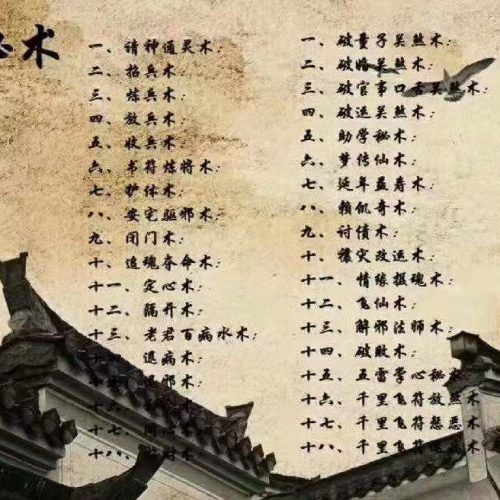 术
一、请神通灵术:
二、招兵术:
三、炼兵术:
四、放兵术:
五、收兵术:
六、书符炼将术:
七、护体术:
八、安宅驱邪术:
九、闭门术:
十、追魂夺命术:
十一、定心术:
十二、隔开术:
十三、老君百病水术:
十四、退病术:
邪术:
十六、
十七、心术:
十八、术:
一、破童子关煞术:
二、破婚关煞术:
三、破官事口舌关煞术:
四、破运关煞术:
五、助学秘术:
六、梦传仙术:
七、延年益寿术:
八、赖饥奇术:
九、讨债术:
十、禳灾改运术:
十一、情缘摄魂术:
十二、飞仙术:
十三、解邪法师术:
十四、破败术:
十五、五雷掌心秘
十六、千里飞符放煞术
十七、千里飞符惩恶术
十八、千里飞符术